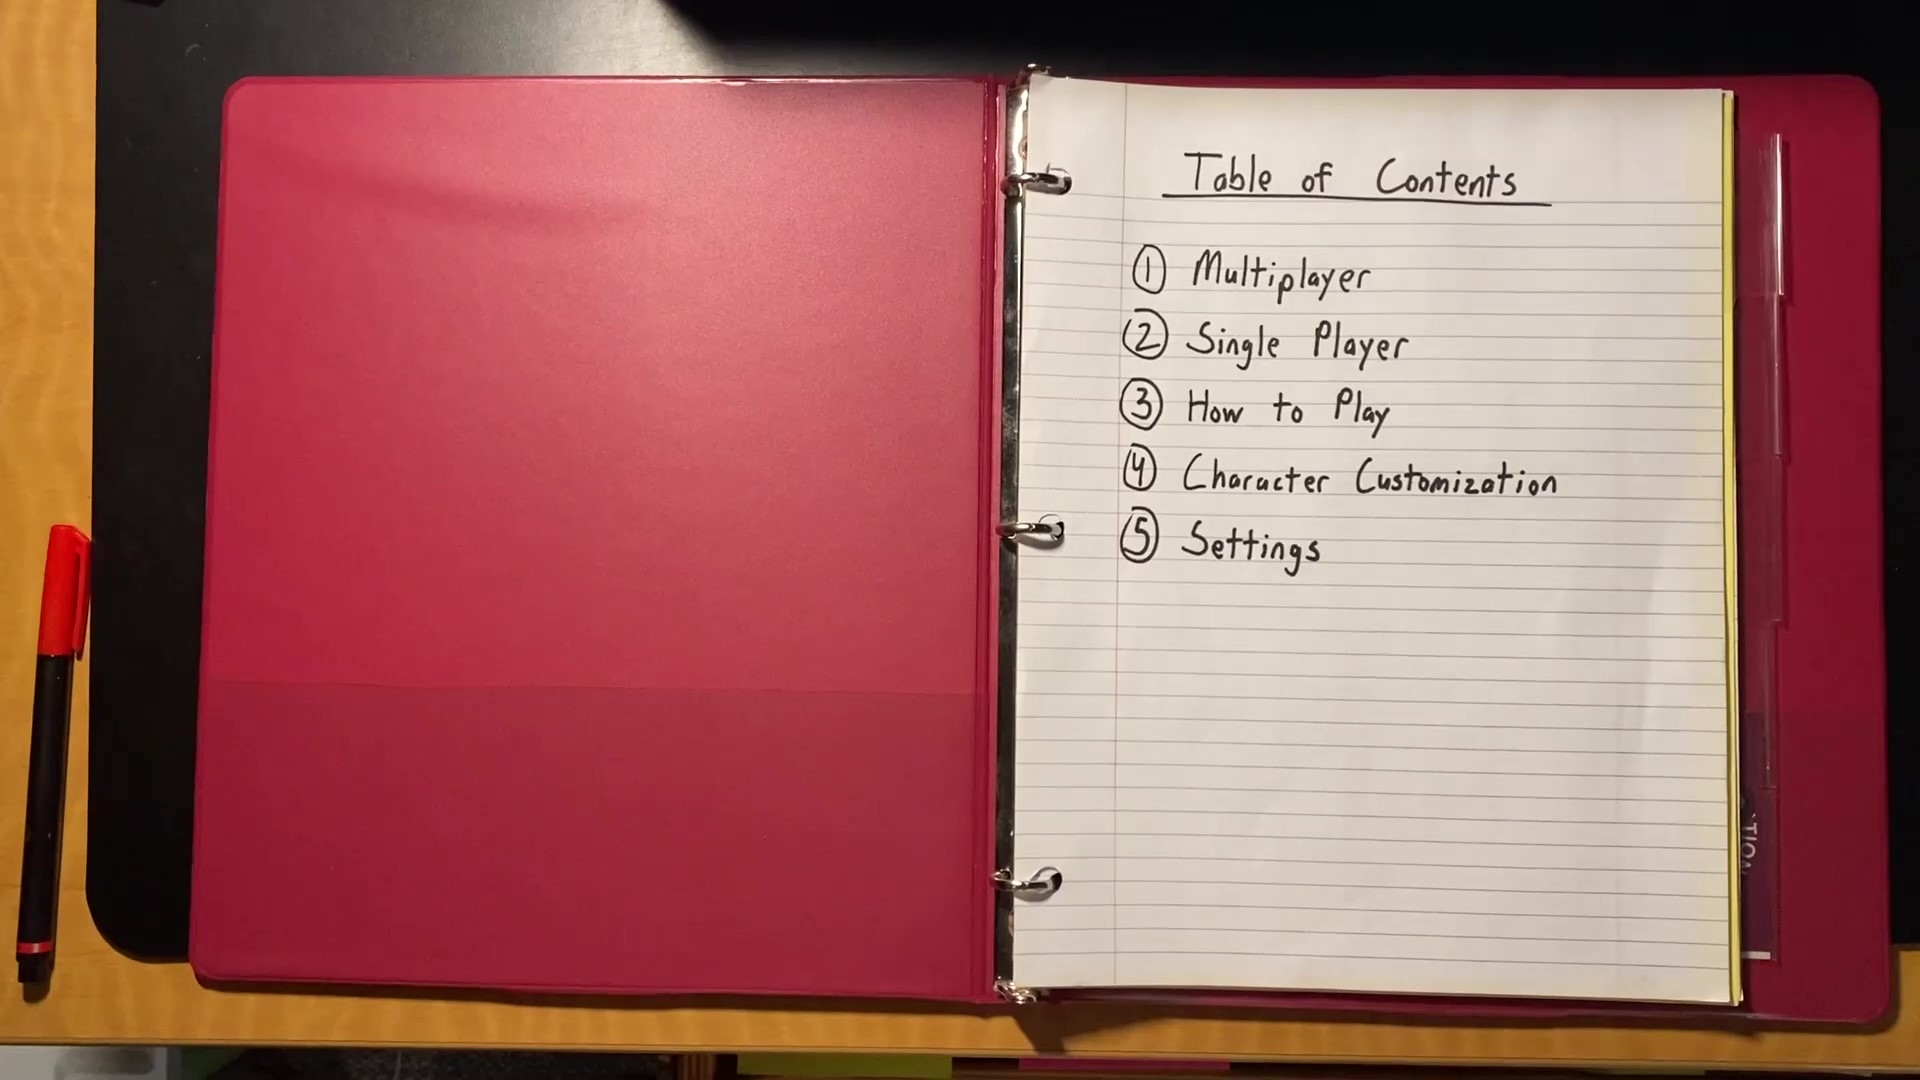 Table of Contents
① Multiplayer
② Single Player
③ How to Play
④ Character Customization
⑤ Settings